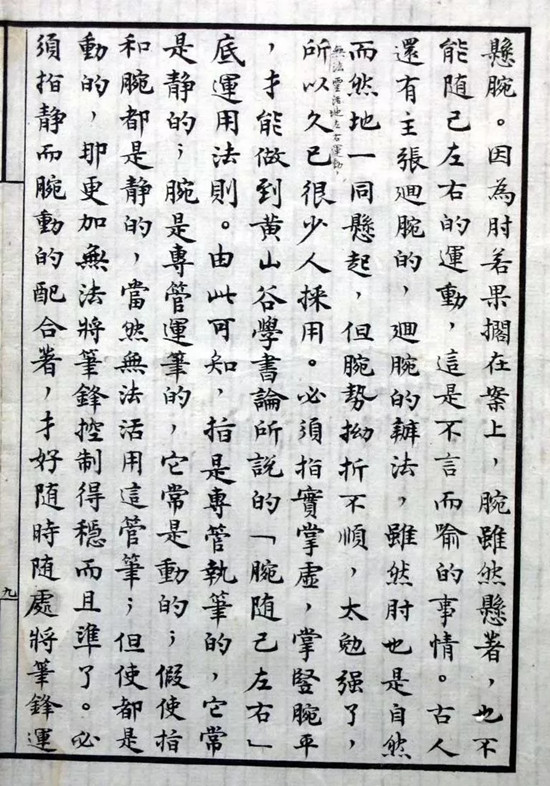 懸腕。因為肘若果擱在案上，腕雖然懸著，也不
能随己左右的運動，這是不言而喻的事情。古人
還有主張廻腕的，廻腕的辦法，雖然肘也是自然
而然地一同懸起，但腕勢拗折不順，太勉强了，
無法靈活地左右運動，
所以久已很少人採用。必須指實掌虛，掌豎腕平
，才能做到黄山谷學書論所説的「腕随己左右」
底運用法則。由此可知，指是專管執筆的，它常
是静的；腕是專管運筆的，它常是動的；假使指
和腕都是静的，當然無法活用這管筆；但使都是
動的，那更加無法將筆鋒控制得穩而且準了。必
須指静而腕動的配合著，才好随時随處將筆鋒運
九